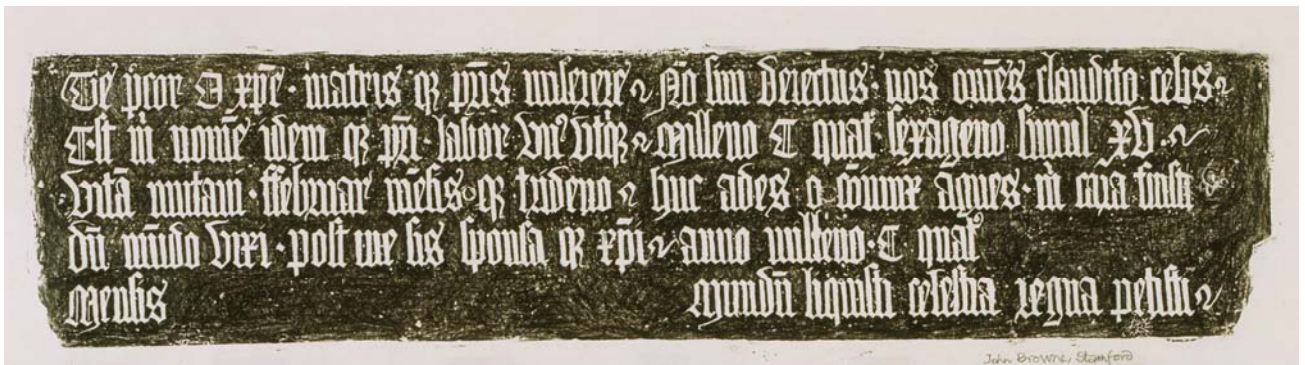 Te p̄cor O xp̄e · matris qꝫ pr̄is miserere ~ Nō sim derectus · nos om̄es claudito celis ~
Est m̄ nom̄e idem qꝫ pr̄i · labor vnꝰ vtrqꝫ ~ Milleno C quat͛ sexageno simul xv · ~
Vitā mutaui · ffebruar mēsis qꝫ trideno ~ huc ades o cōiunx āgnes · m̄ cara fuisti
dū mūdo vixi · post me sis sponsa qꝫ xp̄i ~ anno milleno · C quat͛
Mensis Mundū liquisti celestia regna petisti ~
John Browne, Stamford